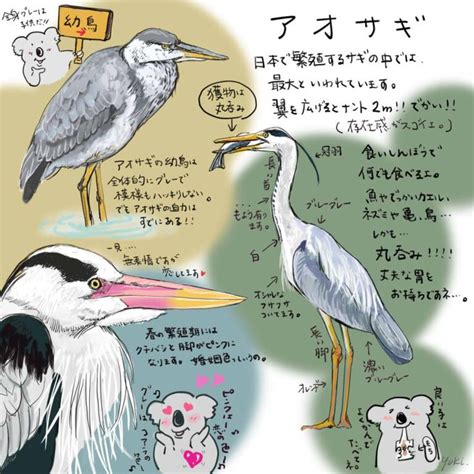 全身グレーは
子供だ!!
幼鳥
アオサギ
日本で繁殖するサギの中では、
最大といわれています。
翼を広げるとナント2m!!でかい!!
(存在感がスゴイエ。)
獲物は
丸呑み
アオサギの幼鳥は
全体的にグレーで
模様もハッキリしない。
でもアオサギの迫力は
すでにある!!
冠羽
青
ブルーグレー
白
長い脚
オレンジ
濃い
ブルーグレー
食いしんぼうで
何でも食べるエ。
魚やでっかいカエル、
ネズミや亀、鳥…
しかも…
丸呑み!!!!
丈夫な胃を
お持ちですネ…。
一見…
無表情ですが
恋してます♥
春の繁殖期には
クチバシと脚がピンクに
なります。婚姻色というの。
良い子は
よくかんで
たべてネ。
YUKI.